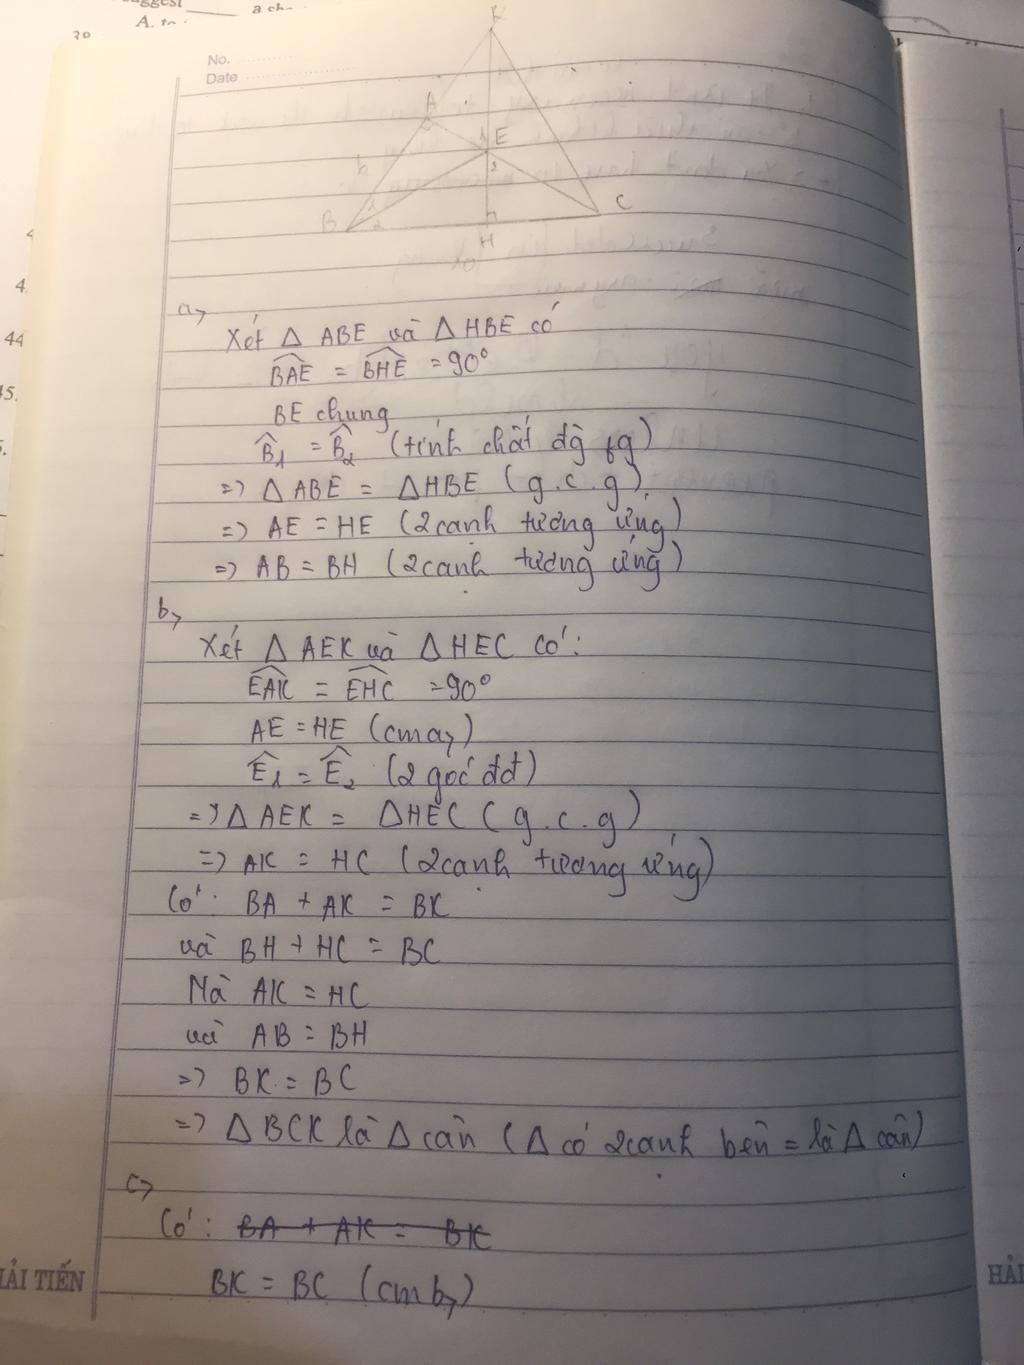 A.
No.
Date
K
A
E
1
2
b
B
1
2
C
H
4
44
a,
Xét Δ ABE và Δ HBE có
BAE = BHE = 90°
BE chung
B1 = B2 (tính chất đg fg)
=> Δ ABE = ΔHBE (g.c.g)
=> AE = HE (2 cạnh tương ứng)
=> AB = BH (2 cạnh tương ứng)
b,
Xét Δ AEK và Δ HEC có:
EAK = EHC = 90°
AE = HE (cma,)
E1 = E2 (2 góc đđ)
=> Δ AEK = ΔHEC (g.c.g)
=> AK = HC (2 cạnh tương ứng)
Có: BA + AK = BK
và BH + HC = BC
Mà AK = HC
và AB = BH
=> BK = BC
=> Δ BCK là Δ cân (Δ có 2 cạnh bên = là Δ cân)
c,
Có: BA + AK = BK
BK = BC (cm b,)
ẢI TIẾN
HẢI